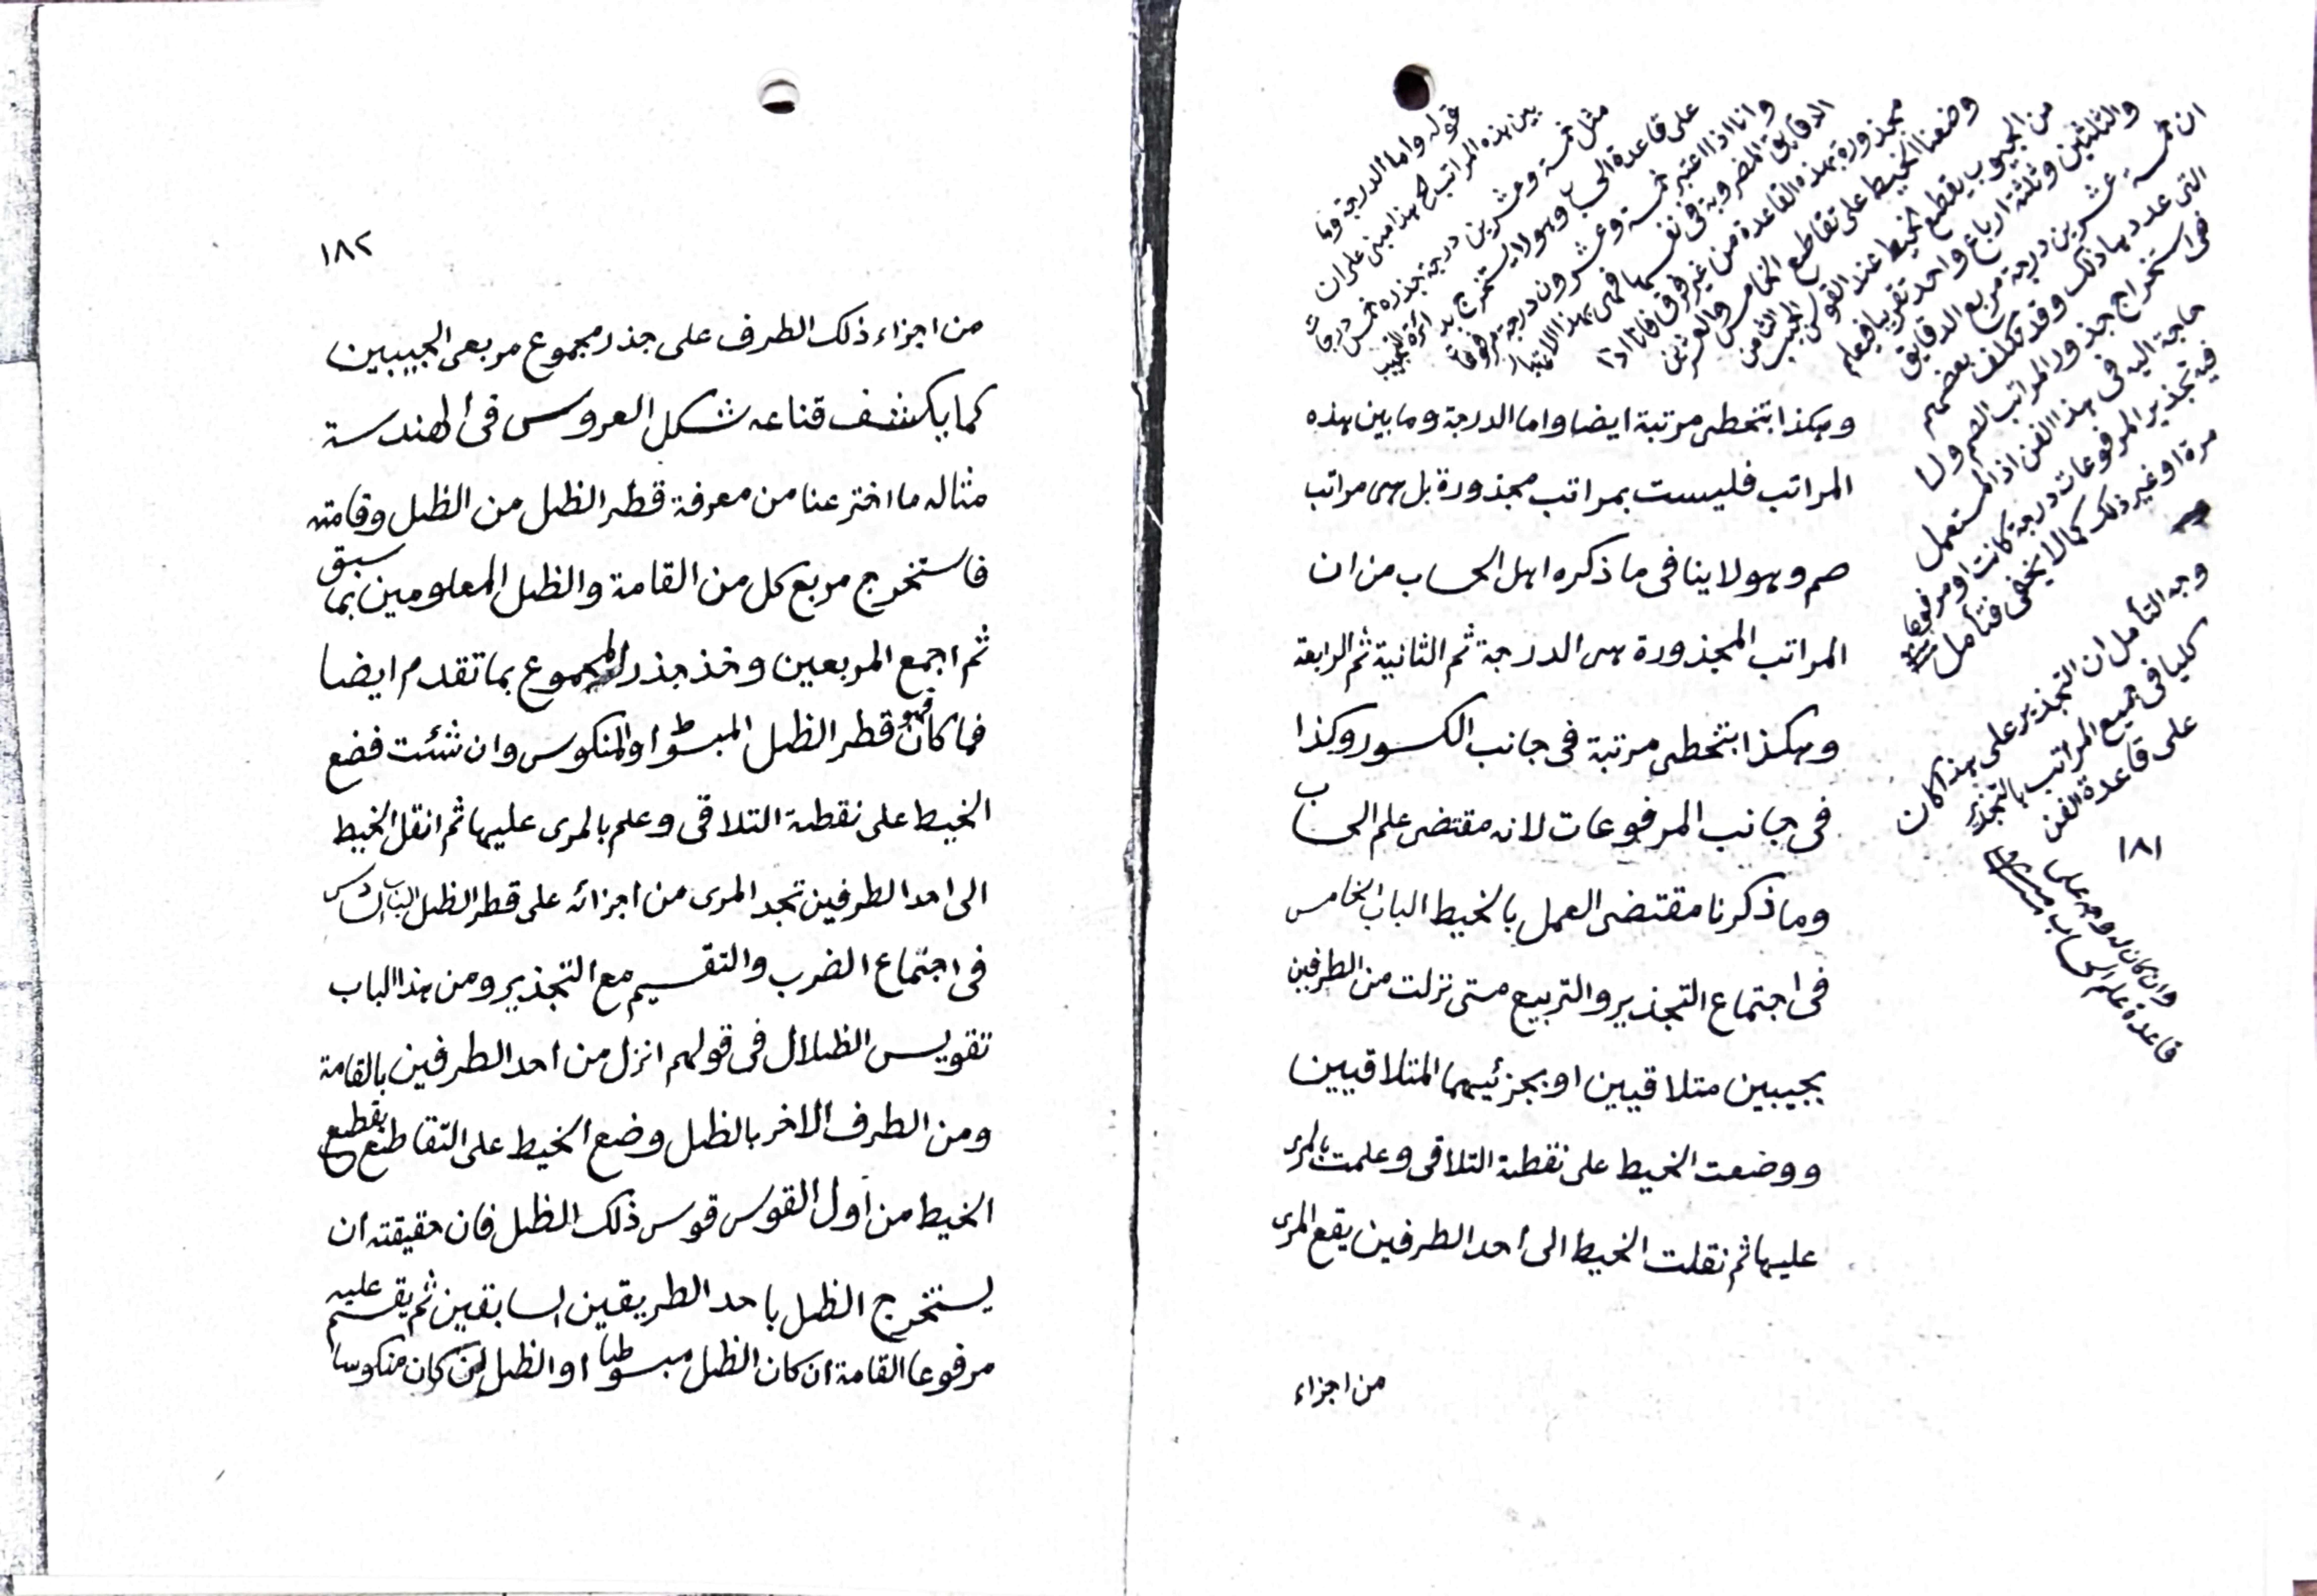 قوله واما الدرجة وما
بين هذه المراتب الخ هذا مبني على ان
مثل خمسة وعشرين درجة جذره خمس درجات
على قاعدة الحساب وهو لا يستخرج بدائرة التجييب
وانا اذا اعتبر خمسة وعشرون درجة مرفوعا
الدقايق المضروبة في نفسها فهي بهذا الاعتبار
مجذورة بهذه القاعدة من غير فرق فانا اذا
وضعنا الخيط على تقاطع الخامس والعشرين
من الجيوب يقطع الخيط عند القوس الجيب الثامن
والثلثين وثلثة ارباع واحد تقريبا فيعلم
ان خمسة عشرين درجة مربع الدقايق
التي عددها ذلك وقد تكلف بعضهم
في استخراج جذور المراتب الصم ولا
حاجة اليه في هذا الفن اذ المستعمل
فيه تجذير المرفوعات درجة كانت او مرفوعا
مرة او غير ذلك كما لا يخفى فتأمل
وجه التأمل ان التجذير على هذا كان
كليا في جميع المراتب بالتجذير
على قاعدة الفن
وان كان له وجه على
قاعدة علم الحساب
١٨١
وهكذا بتخطى مرتبة ايضا واما الدرجة وما بين هذه
المراتب فليست بمراتب مجذورة بل هى مراتب
صم وهو لا ينافى ما ذكره اهل الحساب من ان
المراتب المجذورة هى الدرجة ثم الثانية ثم الرابعة
وهكذا بتخطى مرتبة فى جانب الكسور وكذا
فى جانب المرفوعات لانه مقتضى علم الحساب
وما ذكرنا مقتضى العمل بالخيط الباب الخامس
فى اجتماع التجذير والتربيع متى نزلت من الطرفين
بجيبين متلاقيين او بجزئيهما المتلاقيين
ووضعت الخيط على نقطة التلاقى وعلمت بالمرى
عليها ثم نقلت الخيط الى أحد الطرفين يقع المرى
من اجزاء
١٨٢
من اجزاء ذلك الطرف على جذر مجموع مربعى الجيبين
كما يكشف قناعه شكل العروس فى الهندسة
مثاله ما اخترعنا من معرفة قطر الظل من الظل وقامته
فاستخرج مربع كل من القامة والظل المعلومين بما سبق
ثم اجمع المربعين وخذ جذر المجموع بما تقدم ايضا
فما كان فهو قطر الظل المبسوط او المنكوس وان شئت فضع
الخيط على نقطة التلاقى وعلم بالمرى عليها ثم انقل الخيط
الى احد الطرفين تجد المرى من اجزائه على قطر الظل الباب السادس
فى اجتماع الضرب والتقسيم مع التجذير ومن هذا الباب
تقويس الظلال فى قولهم انزل من أحد الطرفين بالقامة
ومن الطرف الاخر بالظل وضع الخيط على التقاطع يقطع
الخيط من اول القوس قوس ذلك الظل فان حقيقته ان
يستخرج الظل باحد الطريقين السابقين ثم يقسم عليه
مرفوعا القامة ان كان الظل مبسوطا او الظل ان كان منكوسا